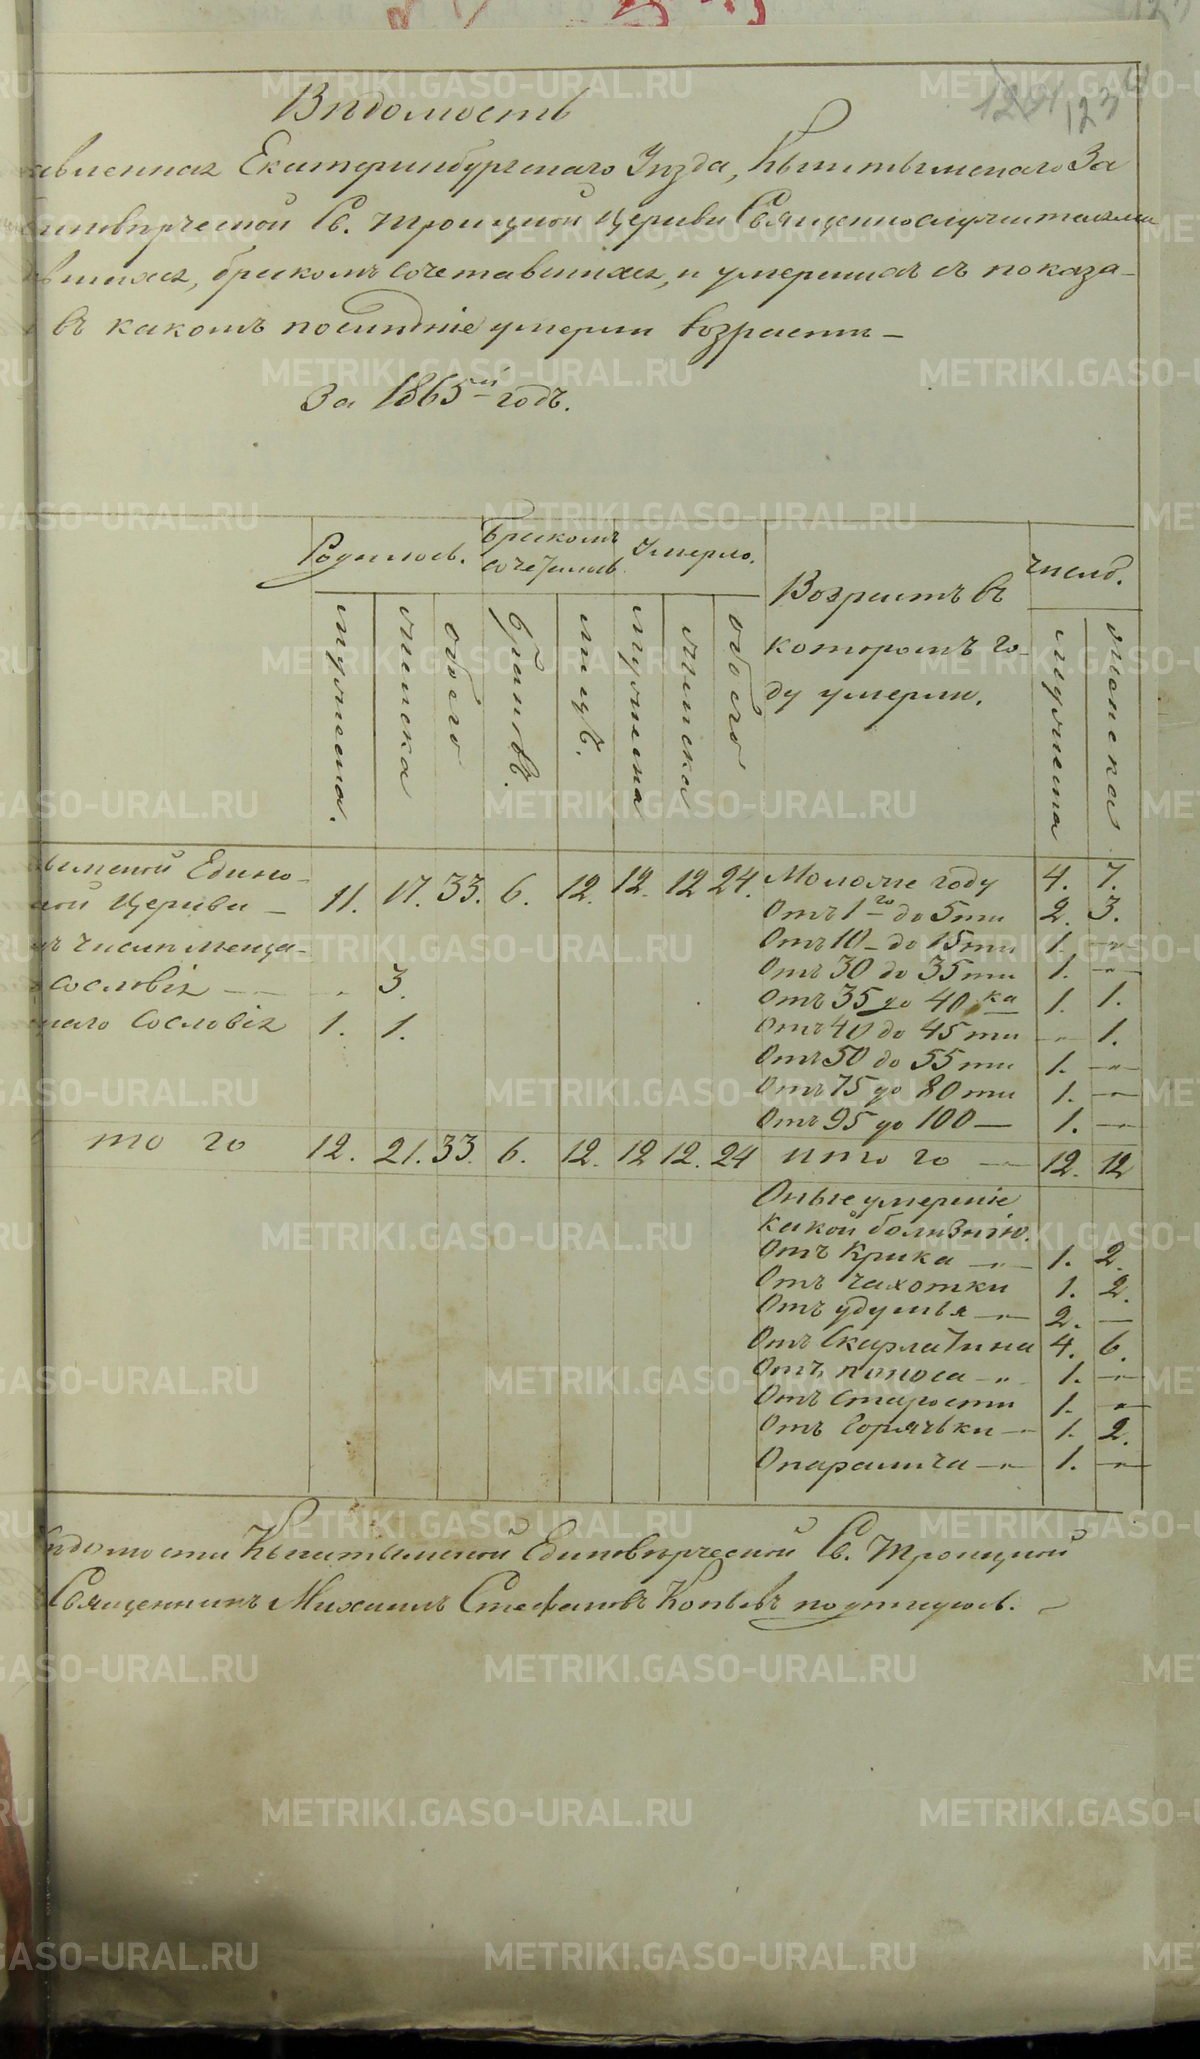 Вѣдомость
123
авленная Екатеринбургскаго Уѣзда, Кыштымскаго За
диновѣрческой Св. Троицкой Церкви Священнослужителями
вшихся, бракомъ сочетавшихся, и умершихъ съ показа-
въ какомъ послѣдніе умерли возрастѣ –
За 1865й годъ.
Родилось. Бракомъ сочетались Умерло. Возрастъ въ которомъ году умерли. Число.
мужеска. женска обоего браковъ. лицъ. мужеска женска обоего мужеска женска
ымской Едино-
кой Церкви – 11. 17. 33. 6. 12. 12. 12 24. Моложе году 4. 7.
Отъ 1го до 5ти 2. 3.
ъ числѣ меща- Отъ 10 – до 15ти 1. –"–
Отъ 30 до 35ти 1. –"–
сословія – 3. Отъ 35 до 40ка 1. 1.
наго сословія 1. 1. Отъ 40 до 45ти –"– 1.
Отъ 50 до 55ти 1. –"–
Отъ 75 до 80ти 1. –"–
Отъ 95 до 100 – 1. –"–
то го 12. 21. 33. 6. 12. 12 12. 24 итого – 12. 12
Оные умершіе
какой болѣзнію.
Отъ крика –"– 1. 2.
Отъ чахотки 1. 2.
Отъ удушья –"– 2. –
Отъ скарлатина 4. 6.
Отъ поноса –"– 1. –"–
Отъ старости 1. –"–
Отъ горячьки –"– 1. 2.
Опаралича –"– 1. –"–
ѣдомости Кыштымской Единовѣрческой Св. Троицкой
Священникъ Михаилъ Стефановъ Копьевъ подписуюсь.
METRIKI.GASO-URAL.RU